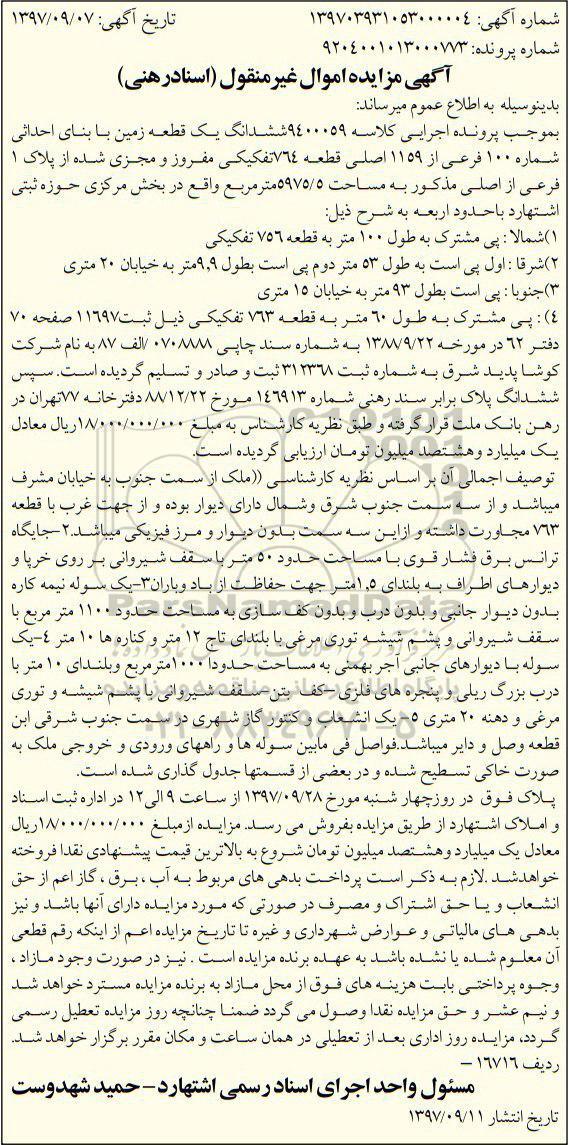 شماره آگهی: ۱۳۹۷۰۳۹۳۱۰۵۳۰۰۰۰۰۴ تاریخ آگهی: ۱۳۹۷/۰۹/۰۷
شماره پرونده: ۹۲۰۴۰۰۱۰۱۳۰۰۰۷۷۳
آگهی مزایده اموال غیرمنقول (اسنادرهنی)
بدینوسیله به اطلاع عموم میرساند:
بموجب پرونده اجرایی کلاسه ۹۴۰۰۰۵۹ششدانگ یک قطعه زمین با بنای احداثی
شماره ۱۰۰ فرعی از ۱۱۵۹ اصلی قطعه ۷۶۴تفکیکی مفروز و مجزی شده از پلاک ۱
فرعی از اصلی مذکور به مساحت ۵۹۷۵/۵مترمربع واقع در بخش مرکزی حوزه ثبتی
اشتهارد باحدود اربعه به شرح ذیل:
۱)شمالا : پی مشترک به طول ۱۰۰ متر به قطعه ۷۵۶ تفکیکی
۲)شرقا : اول پی است به طول ۵۳ متر دوم پی است بطول ۹,۹متر به خیابان ۲۰ متری
۳)جنوبا : پی است بطول ۹۳ متر به خیابان ۱۵ متری
۴) : پی مشترک به طول ۶۰ متر به قطعه ۷۶۳ تفکیکی ذیل ثبت۱۱۶۹۷ صفحه ۷۰
دفتر ۶۲ در مورخه ۱۳۸۸/۹/۲۲ به شماره سند چاپی ۰۷۰۸۸۸۸ /الف ۸۷ به نام شرکت
کوشا پدید شرق به شماره ثبت ۳۱۲۳۶۸ ثبت و صادر و تسلیم گردیده است. سپس
ششدانگ پلاک برابر سند رهنی شماره ۱۴۶۹۱۳ مورخ ۸۸/۱۲/۲۲ دفترخانه ۷۷تهران در
رهن بانک ملت قرار گرفته و طبق نظریه کارشناس به مبلغ ۱۸/۰۰۰/۰۰۰/۰۰۰ریال معادل
یک میلیارد وهشتصد میلیون تومان ارزیابی گردیده است.
توصیف اجمالی آن بر اساس نظریه کارشناسی ((ملک از سمت جنوب به خیابان مشرف
میباشد و از سه سمت جنوب شرق وشمال دارای دیوار بوده و از جهت غرب با قطعه
۷۶۳ مجاورت داشته و ازاین سه سمت بدون دیوار و مرز فیزیکی میباشد.۲-جایگاه
ترانس برق فشار قوی با مساحت حدود ۵۰ متر با سقف شیروانی بر روی خرپا و
دیوارهای اطراف به بلندای ۱,۵متر جهت حفاظت از باد وباران۳-یک سوله نیمه کاره
بدون دیوار جانبی و بدون درب و بدون کف سازی به مساحت حدود ۱۱۰۰ متر مربع با
سقف شیروانی و پشم شیشه توری مرغی با بلندای تاج ۱۲ متر و کناره ها ۱۰ متر ۴-یک
سوله با دیوارهای جانبی آجر بهمنی به مساحت حدودا ۱۰۰۰مترمربع وبلندای ۱۰ متر با
درب بزرگ ریلی و پنجره های فلزی-کف بتن-سقف شیروانی با پشم شیشه و توری
مرغی و دهنه ۲۰ متری ۵- یک انشعاب و کنتور گاز شهری در سمت جنوب شرقی این
قطعه وصل و دایر میباشد.فواصل فی مابین سوله ها و راههای ورودی و خروجی ملک به
صورت خاکی تسطیح شده و در بعضی از قسمتها جدول گذاری شده است.
پلاک فوق در روزچهار شنبه مورخ ۱۳۹۷/۰۹/۲۸ از ساعت ۹ الی۱۲ در اداره ثبت اسناد
و املاک اشتهارد از طریق مزایده بفروش می رسد. مزایده ازمبلغ ۱۸/۰۰۰/۰۰۰/۰۰۰ریال
معادل یک میلیارد وهشتصد میلیون تومان شروع به بالاترین قیمت پیشنهادی نقدا فروخته
خواهدشد .لازم به ذکر است پرداخت بدهی های مربوط به آب ، برق ، گاز اعم از حق
انشعاب و یا حق اشتراک و مصرف در صورتی که مورد مزایده دارای آنها باشد و نیز
بدهی های مالیاتی و عوارض شهرداری و غیره تا تاریخ مزایده اعم از اینکه رقم قطعی
آن معلوم شده یا نشده باشد به عهده برنده مزایده است . نیز در صورت وجود مازاد ،
وجوه پرداختی بابت هزینه های فوق از محل مازاد به برنده مزایده مسترد خواهد شد
و نیم عشر و حق مزایده نقدا وصول می گردد ضمنا چنانچه روز مزایده تعطیل رسمی
گردد، مزایده روز اداری بعد از تعطیلی در همان ساعت و مکان مقرر برگزار خواهد شد.
ردیف ۱۶۷۱۶ –
مسئول واحد اجرای اسناد رسمی اشتهارد - حمید شهدوست
تاریخ انتشار ۱۳۹۷/۰۹/۱۱
ParsNamadData
۰۲۱-۸۸۳۴۹۶۷۰-۵